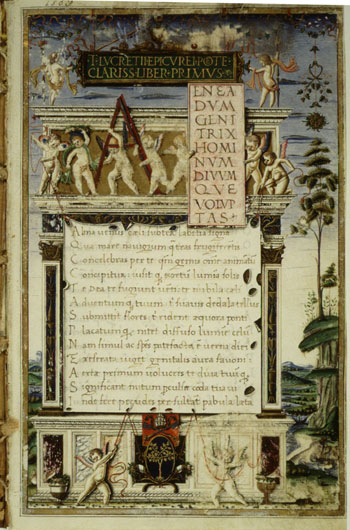 T·LVCRETII EPICVREI POTE
CLARISS·LIBER·PRIMVS·
A
ENEA
DVM
GENI
TRIX
HOMI
NVM
DIVVM
QVE
VOLVP
TAS
Alma uenus cæli subter labentia signa
Quæ mare nauigerum
Concelebras per te genus omne animantu
Concipitur uisitq lumina solis
Te Dea te fugiunt uenti te nubila cæli
Aduentumq tuum suauis dedala tellus
Submittit flores rident æquora ponti
Placatumq nitet diffuso lumine cælum
Nam simul ac patefacta uerna diei
Et reserata uiget genitalis aura fauoni
Aeriæ primum uolucres te diua tuumq
Significant initum perculsæ corda tua ui
Inde feræ pecudes persultant pabula læta